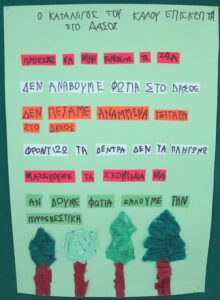 Ο ΚΑΤΑΛΟΓΟΣ ΤΟΥ ΚΑΛΟΥ ΕΠΙΣΚΕΠΤΗ
ΣΤΟ ΔΑΣΟΣ
ΠΡΟΣΕΧΩ ΝΑ ΜΗΝ ΤΑ ΖΩΑ
ΔΕΝ ΑΝΑΒΟΥΜΕ ΦΩΤΙΑ ΣΤΟ ΔΑΣΟΣ
ΔΕΝ ΠΕΤΑΜΕ ΑΝΑΜΜΕΝΑ ΤΣΙΓΑΡΑ
ΣΤΟ ΔΑΣΟΣ
ΦΡΟΝΤΙΖΩ ΤΑ ΔΕΝΤΡΑ ΔΕΝ ΤΑ ΠΛΗΓΩΝΩ
ΜΑΖΕΥΟΥΜΕ ΤΑ ΣΚΟΥΠΙΔΙΑ ΜΑΣ
ΑΝ ΔΟΥΜΕ ΦΩΤΙΑ ΚΑΛΟΥΜΕ ΤΗΝ
ΠΥΡΟΣΒΕΣΤΙΚΗ